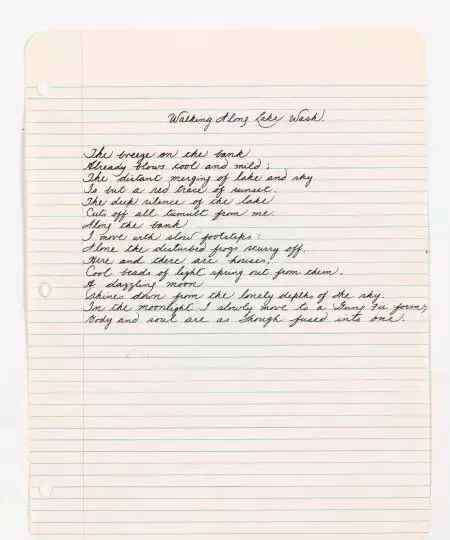 Walking Along Lake Wash.
The breeze on the bank
Already blows cool and mild;
The distant merging of lake and sky
Is but a red trace of sunset.
The deep silence of the lake
Cuts off all tumult from me.
Along the bank
I move with slow footsteps:
Alone the disturbed frogs scurry off.
Here and there are houses,
Cool beads of light spring out from them.
A dazzling moon
Shines down from the lonely depths of the sky.
In the moonlight I slowly move to a Gung Fu form;
Body and soul are as though fused into one.